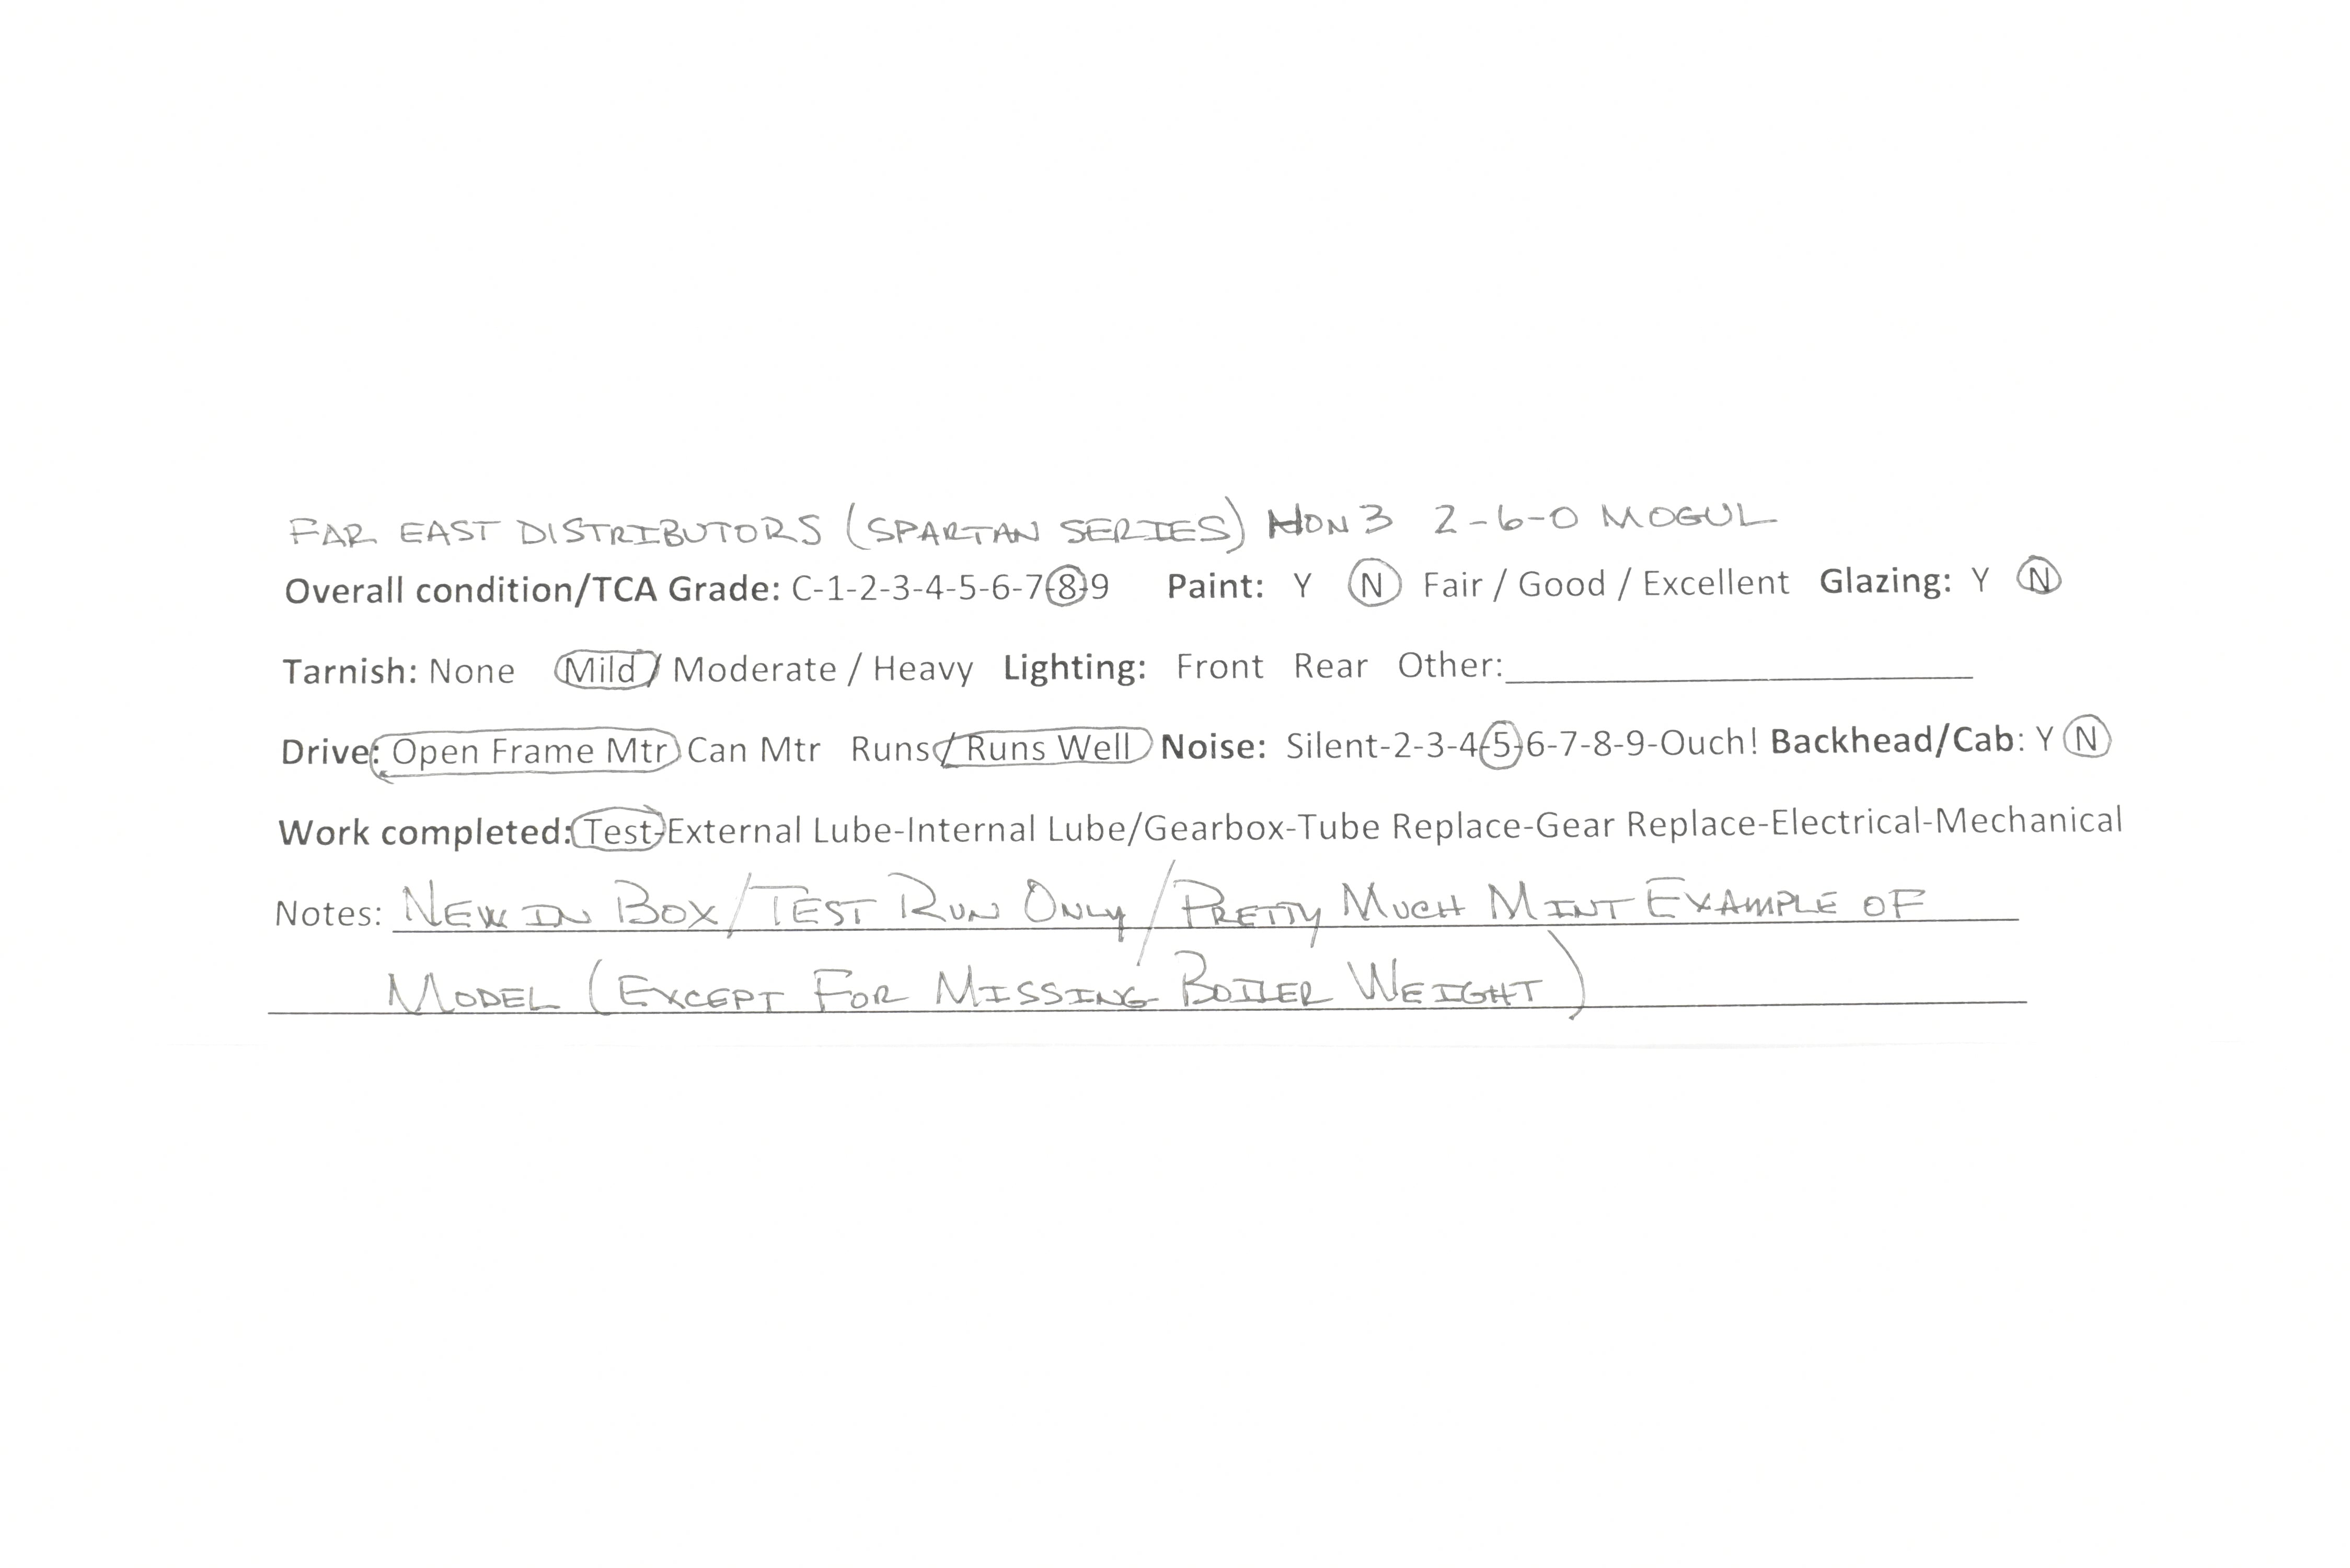 FAR EAST DISTRIBUTORS (SPARTAN SERIES) HON3 2-6-0 MOGUL
Overall condition/TCA Grade: C-1-2-3-4-5-6-7-8-9 Paint: Y N Fair / Good / Excellent Glazing: Y N
Tarnish: None Mild / Moderate / Heavy Lighting: Front Rear Other:
Drive: Open Frame Mtr Can Mtr Runs / Runs Well Noise: Silent-2-3-4-5-6-7-8-9-Ouch! Backhead/Cab: Y N
Work completed: Test-External Lube-Internal Lube/Gearbox-Tube Replace-Gear Replace-Electrical-Mechanical
Notes: NEW IN BOX/TEST RUN ONLY/PRETTY MUCH MINT EXAMPLE OF
MODEL (EXCEPT FOR MISSING BOILER WEIGHT)